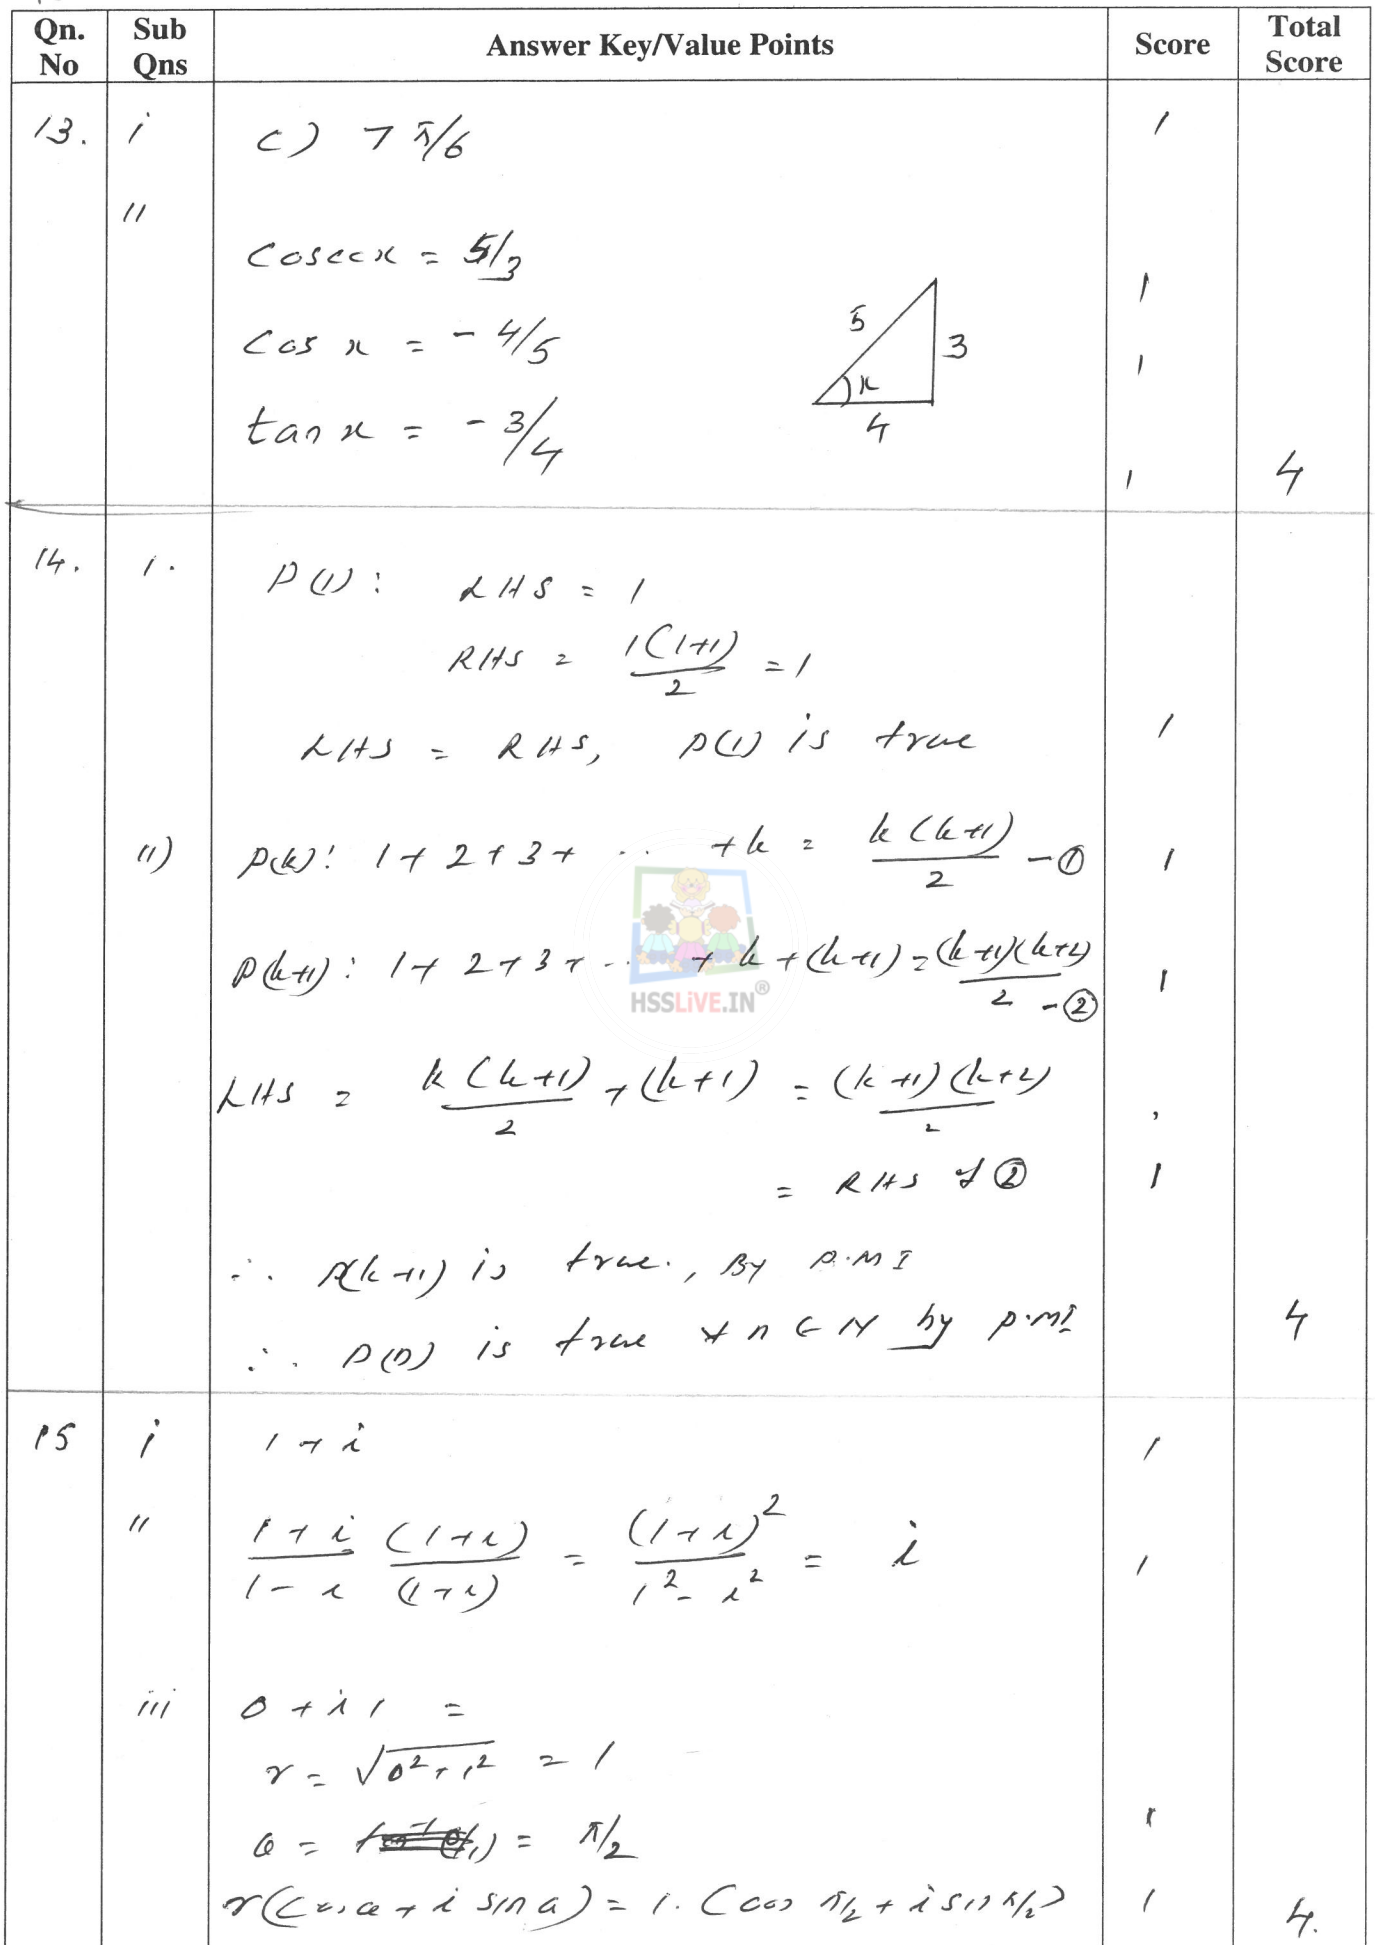 Qn. No Sub Qns Answer Key/Value Points Score Total Score
13. i c) 7π/6 1
ii
cosec x = 5/3 1
cos x = - 4/5 1
tan x = - 3/4 1 4
5 3 x 4
14. i. P(1): LHS = 1
RHS = 1(1+1)/2 = 1
LHS = RHS, P(1) is true 1
ii) P(k): 1+2+3+ .. +k = k(k+1)/2 - ① 1
P(k+1): 1+2+3+ ... +k+(k+1) = (k+1)(k+2)/2 - ② 1
HSSLiVE.IN®
LHS = k(k+1)/2 + (k+1) = (k+1)(k+2)/2
= RHS of ② 1
∴ P(k+1) is true., By P.M I
∴ P(n) is true ∀ n ∈ N by P.MI 4
15 i 1+i 1
ii 1+i/1-i (1+i)/(1+i) = (1+i)²/1²-i² = i 1
iii 0+i1 =
r = √0²+1² = 1
θ = = π/2 1
r(cosθ + i sinθ) = 1. (cos π/2 + i sin π/2) 1 4.